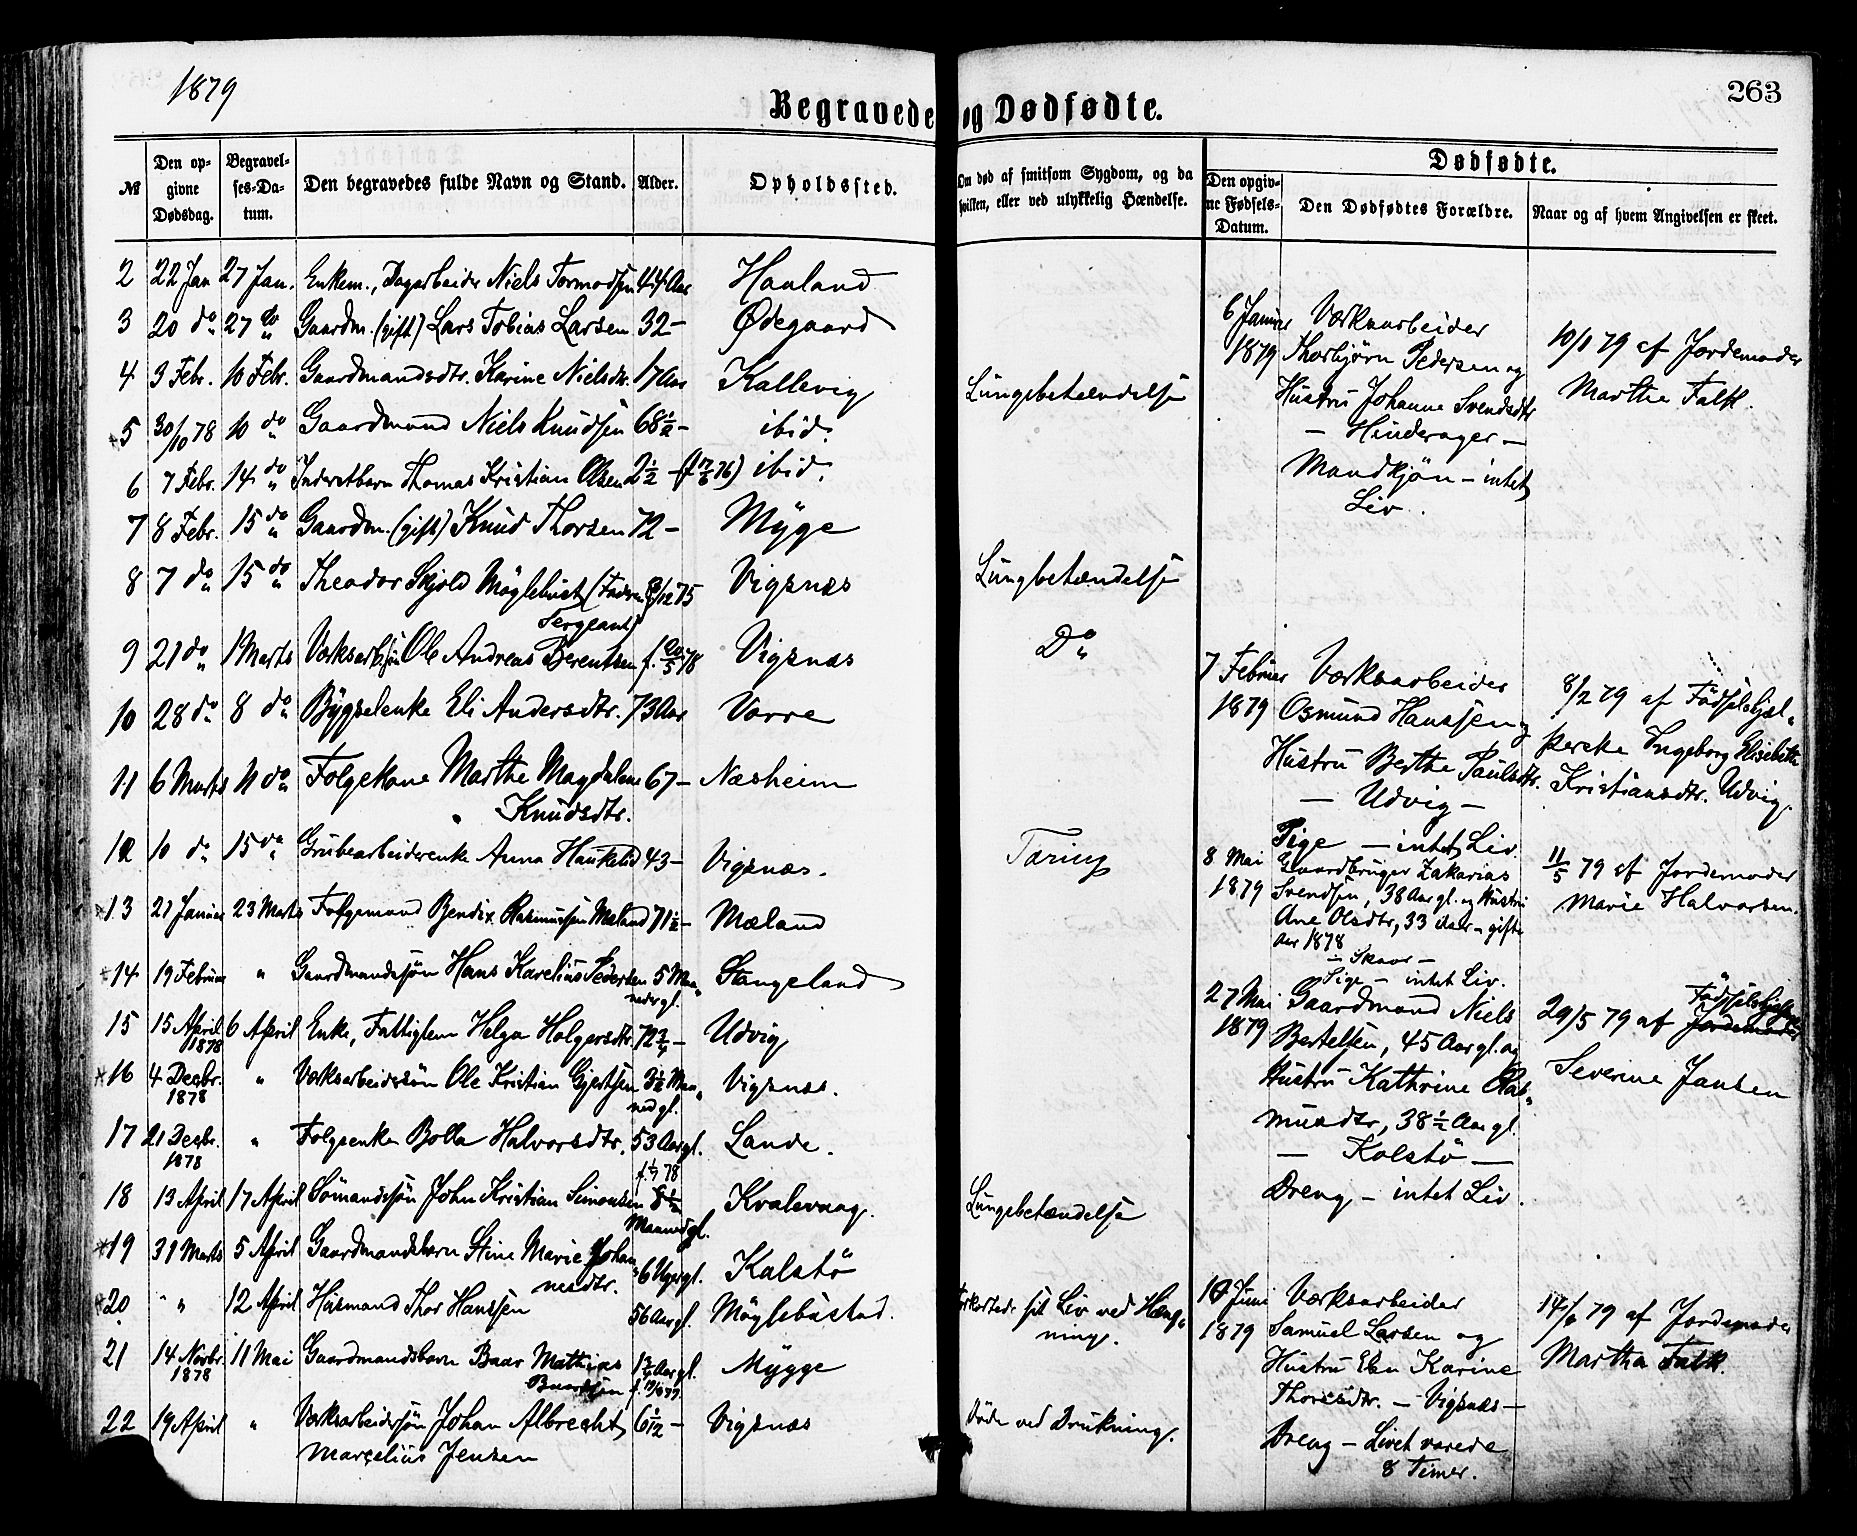 1879
263
Begravede og Dødfødte.
№
Den opgivne Dødsdag.
Begravelses-Datum.
Den begravedes fulde Navn og Stand.
Alder.
Opholdssted.
Om død af smitsom Sygdom, og da hvilken, eller ved ulykkelig Hændelse.
Dødfødte.
Den opgivne Fødsels-Datum.
Den Dødfødtes Forældre.
Naar og af hvem Angivelsen er skeet.
2 22 Jan 27 Jan. Enkem., Dagarbeider Niels Tormodsen 44 Aar Hauland
3 20 do 27 do Gaardm. (gift) Lars Tobias Larsen 32 – Ødegaard
4 3 Febr. 10 Febr. Gaardmandsdtr. Karine Nielsdtr. 17 Aar Kallevig Lungebetændelse
5 30/10 78 10 do Gaardmand Niels Knudsen 68 1/2 – ibid.
6 7 Febr. 14 do Inderstbarn Thomas Kristian Olsen 2 1/2 – ibid.
7 8 Febr. 15 do Gaardm. (gift) Knud Thorsen 72 – Mÿge
8 7 do 15 do Theodor Skjold Møglebust (Faderen /12 75 Vigsnæs Lungebetændelse
Sergeant)
9 21 do 1 Marts Værksarb.søn Ole Andreas Berentsen f. 20/5 78 Vigsnæs Do
10 28 do 8 do Bÿgselenke Eli Andersdtr. 73 Aar Vorre
11 6 Marts 11 do Folgekone Marthe Magdalene 67 – Næsheim
Knudsdtr.
12 10 do 15 do Grubearbeiderenke Anna Haukelid 43 – Vigsnæs. Tæring
13 21 Januar 23 Marts Folgemand Bendix Rasmussen Mæland 71 1/2 – Mæland
14 19 Februar " Gaardmandssøn Hans Karelius Pedersen 5 Maa-
neder gl. Stangeland
15 15 April 1878 6 April Enke, Fattiglem Helga Holgersdtr. 72 3/4 – Udvig
16 4 Decbr. 1878 " Værksarbeidersøn Ole Kristian Gjertsen 3 1/2 Maa-
ned gl. Vigsnæs.
17 21 Decbr. 1878 " Folgeenke Bolla Halvorsdtr. 53 Aar gl. Lande.
18 13 April 17 April Sømandssøn John Kristian Simonsen 8 1/2 Maaned gl. Kvalevaag. Lungebetændelse
19 31 Marts 5 April Gaardmandsbarn Stine Marie Johan-
nesdtr. 6 Uger gl. Kalstø
20 " 12 April Husmand Thor Hanssen 56 Aar gl. Møglebustad. Forkortede sit Liv ved Hæng-
ning.
21 14 Novbr. 1878 11 Mai Gaardmandsbarn Baar Mathias
Baardsen Aar gl. Mÿgge
22 19 April " Værksarbeidersøn Johan Albrecht
Marcelius Jensen 6 1/12 – Vigsnæs Døde ved Drukning.
6 Januar 1879
Værksarbeider
Thorbjørn Pedersen og
Hustru Johanne Svendsdtr
– Hinderager –
Mandkjøn – intet
Liv.
10/1 79 af Jordemoder
Marthe Falk.
7 Februar 1879
Værksarbeider
Osmund Hanssen og
Hustru Berthe Paulsdtr.
– Udvig –
Pige – intet Liv.
8/2 79 af Fødselshjæl-
perske Ingeborg Elisabeth
Kristiansdtr. Udvig.
8 Mai 1879
Gaardbruger Zakarias
Svendsen, 38 Aar gl. og Hustru
Ane Olsdtr, 33 Aar – gifte
Aar 1878
– Skaar –
Pige – intet Liv.
11/5 79 af Jordemoder
Marie Halvorsen.
27 Mai 1879
Gaardmand Niels
Bertelsen, 45 Aar gl. og
Hustru Kathrine Ras-
musdtr, 38 1/2 Aar gl.
– Kalstø –
Dreng – intet Liv.
29/5 79 af Jordemoder
Severine Jansen
10 Juni 1879
Værksarbeider
Samuel Larsen og
Hustru Elen Karine
Thoresdtr. – Vigsnæs –
Dreng – Livet varede
8 Timer.
14/6 79 af Jordemoder
Martha Falk.